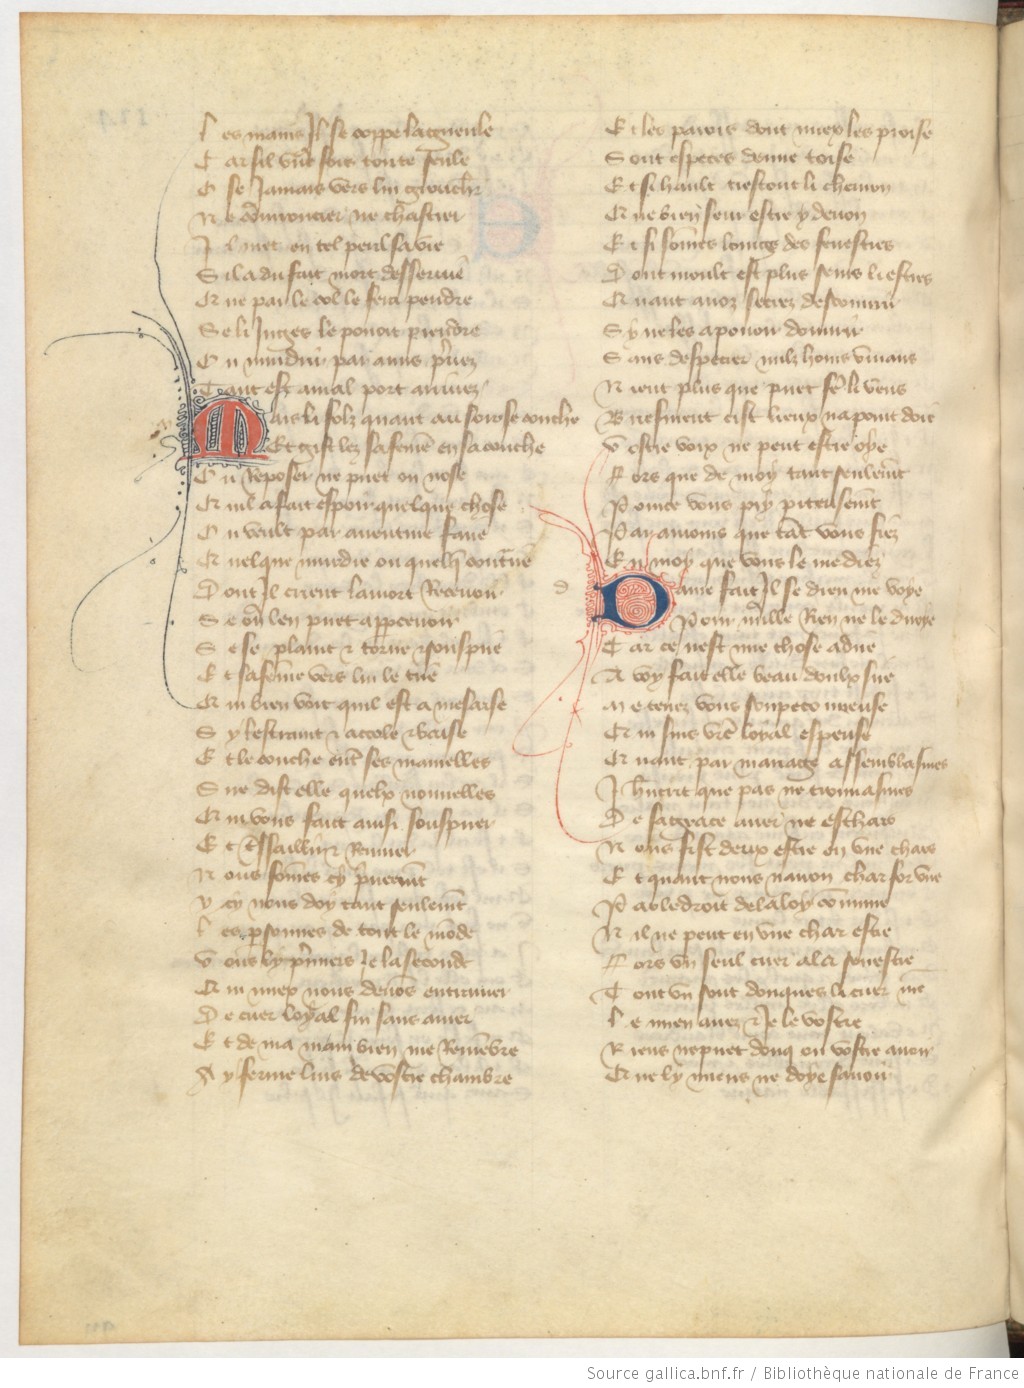 L es mains Il se coppe la gueule
C ar sil vne foiz toute seule
O se Jamais vers lui groucher
N e courroucier ne chastier
I l met en tel peril sa vie
S il a du fait mort desseruie
Q ne par le col le fera pendre
S e li Juges le pouoit prendre
O u murdrir par amis priuez
T ant est a mal port arriuez
M ais li folz quant au soir se couche
E t gist lez sa feme en sa couche
O u Reposer ne puet ou nose
Q uil a fait espoir quelque chose
O u veult par auenture faire
Q uelque murdre ou quelq contraire
D ont Il crient la mort Receuoir
S e on len puet apparceuoir
S e se plaint et torne et souspire
E t sa feme vers lui le tire
Q ui bien voit quil est a mesaise
S y lestraint et accole et baise
E t le couche entre ses mamelles
S ire dist elle quelx nouuelles
Q ui vous fait ainsi souspirer
E t tressaillir et Reuirer
N ous somes cy priueement
y cy nous doy tant seulemt
L es psonnes de tout le mode
V ous ly premiers Je la seconde
Q ui miex nous deuos entramer
D e cuer loyal fin sans amer
E t de ma main bien me Remebre
A y ferme luis de vostre chambre
E t les parois dont miex les proise
S ont especes demie toise
E t si hault restont li cheuron
Q ne bien seur estre y deuon
E t si somes loings des fenestres
D ont moult est plus seurs li estres
Q uant auoz secrez descouurir
S y ne les a pouoir douurir
S ans despecier nulz homs viuans
N ient plus que puet fe li vens
B riefment cist lieux na point doie
V ostre voix ne peut estre oye
F ors que de moy tant seulemt
P ource vous pry piteusemt
P ar amours que tat vous fiez
E n moy que vous le me diez
d
D ame fait Il se dieu me voye
P our nulle Rien ne le diroye
C ar ce nest mie chose a dire
A voy fait elle beau doulx sire
M e tenez vous soupeconneuse
Q ui suis vre loyal espeuse
Q uant par mariage assemblasmes
J hucrit que pas ne trouuasmes
D e sa grace auer ne eschars
N ous fist deux estre en vne chars
E t quant nous nauon char for vne
P ar le droit de la loy comune
N il ne peut en vne char estre
F ors vn seul cuer a la senestre
T out vn sont donques li cuer nre
L e mien auez et Je le vostre
R iens ne puet donq ou vostre auoir
Q ne ly miens ne doye sauoir
Source gallica.bnf.fr / Bibliothèque nationale de France